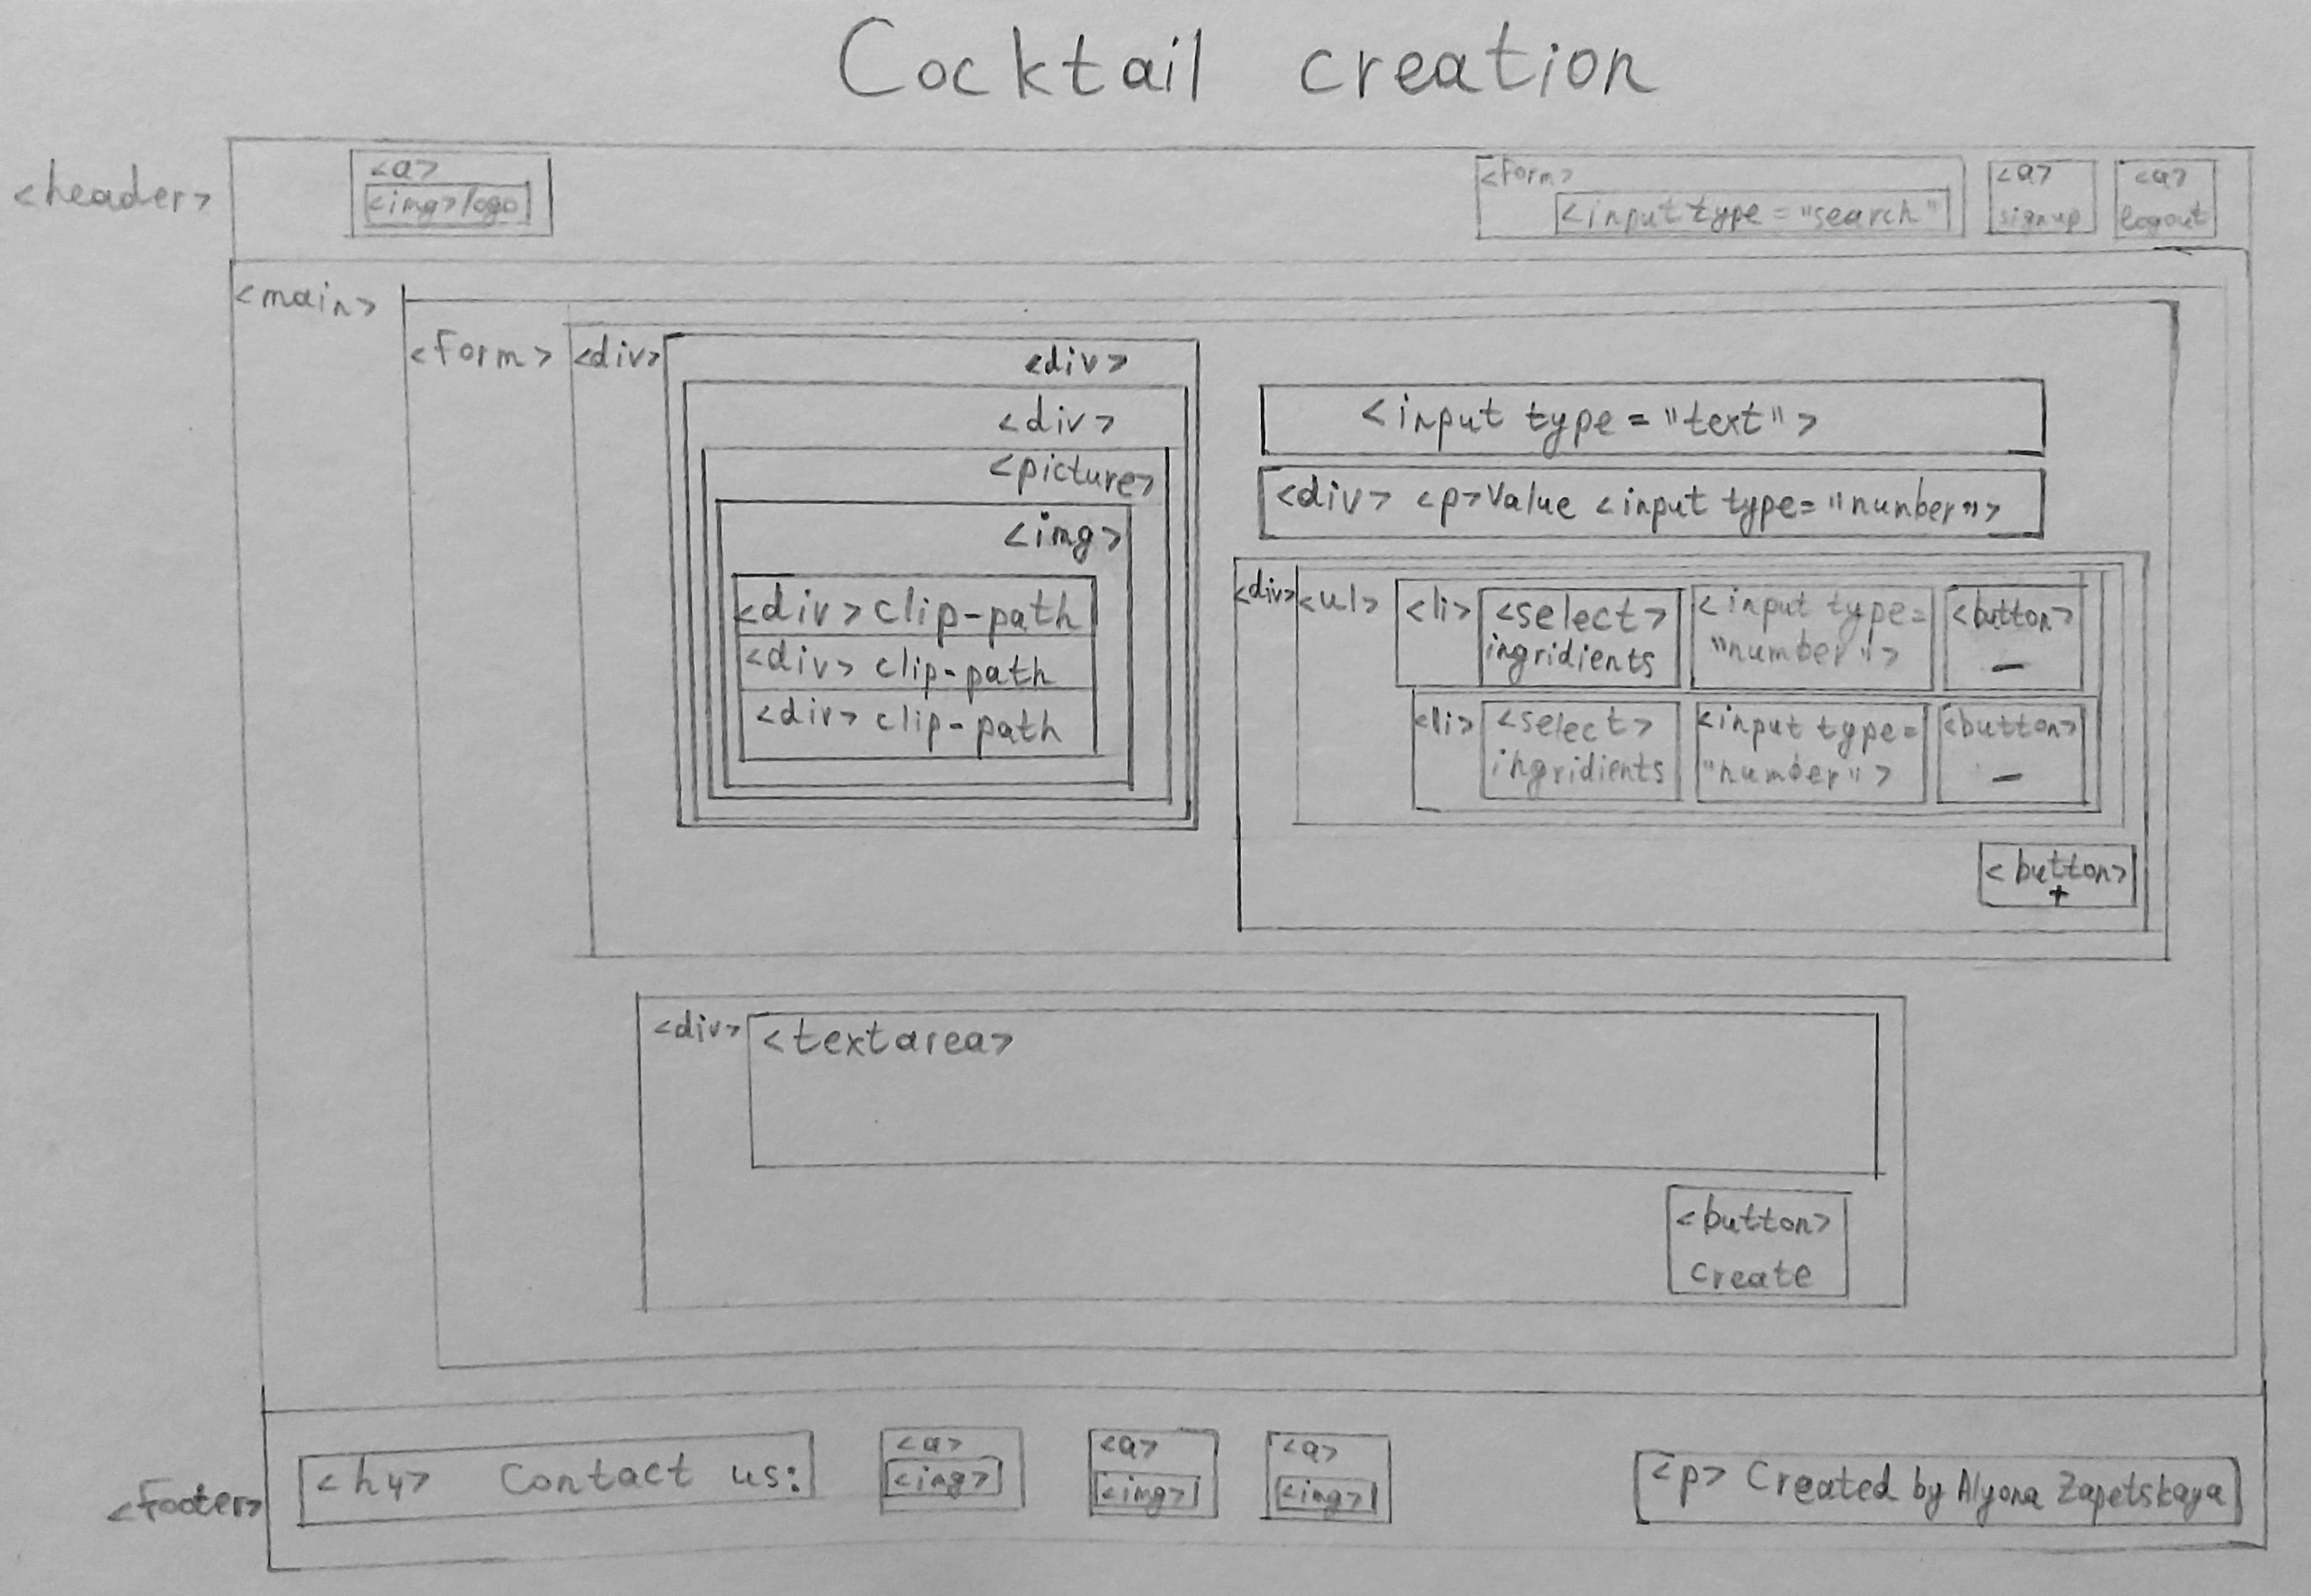 Cocktail creation
<header>
<a>
<img>logo
<form>
<input type="search"
<a>
signup
<a>
logout
<main>
<form>
<div>
<div>
<div>
<picture>
<img>
<div> clip-path
<div> clip-path
<div> clip-path
<input type="text">
<div> <p>Value <input type="number">
<div>
<ul>
<li>
<select>
ingridients
<input type=
"number">
<button>
-
<li>
<select>
ingridients
<input type=
"number">
<button>
-
<button>
+
<div>
<textarea>
<button>
create
<footer>
<h4> Contact us:
<a>
<img>
<a>
<img>
<a>
<img>
<p> Created by Alyona Zapetskaya